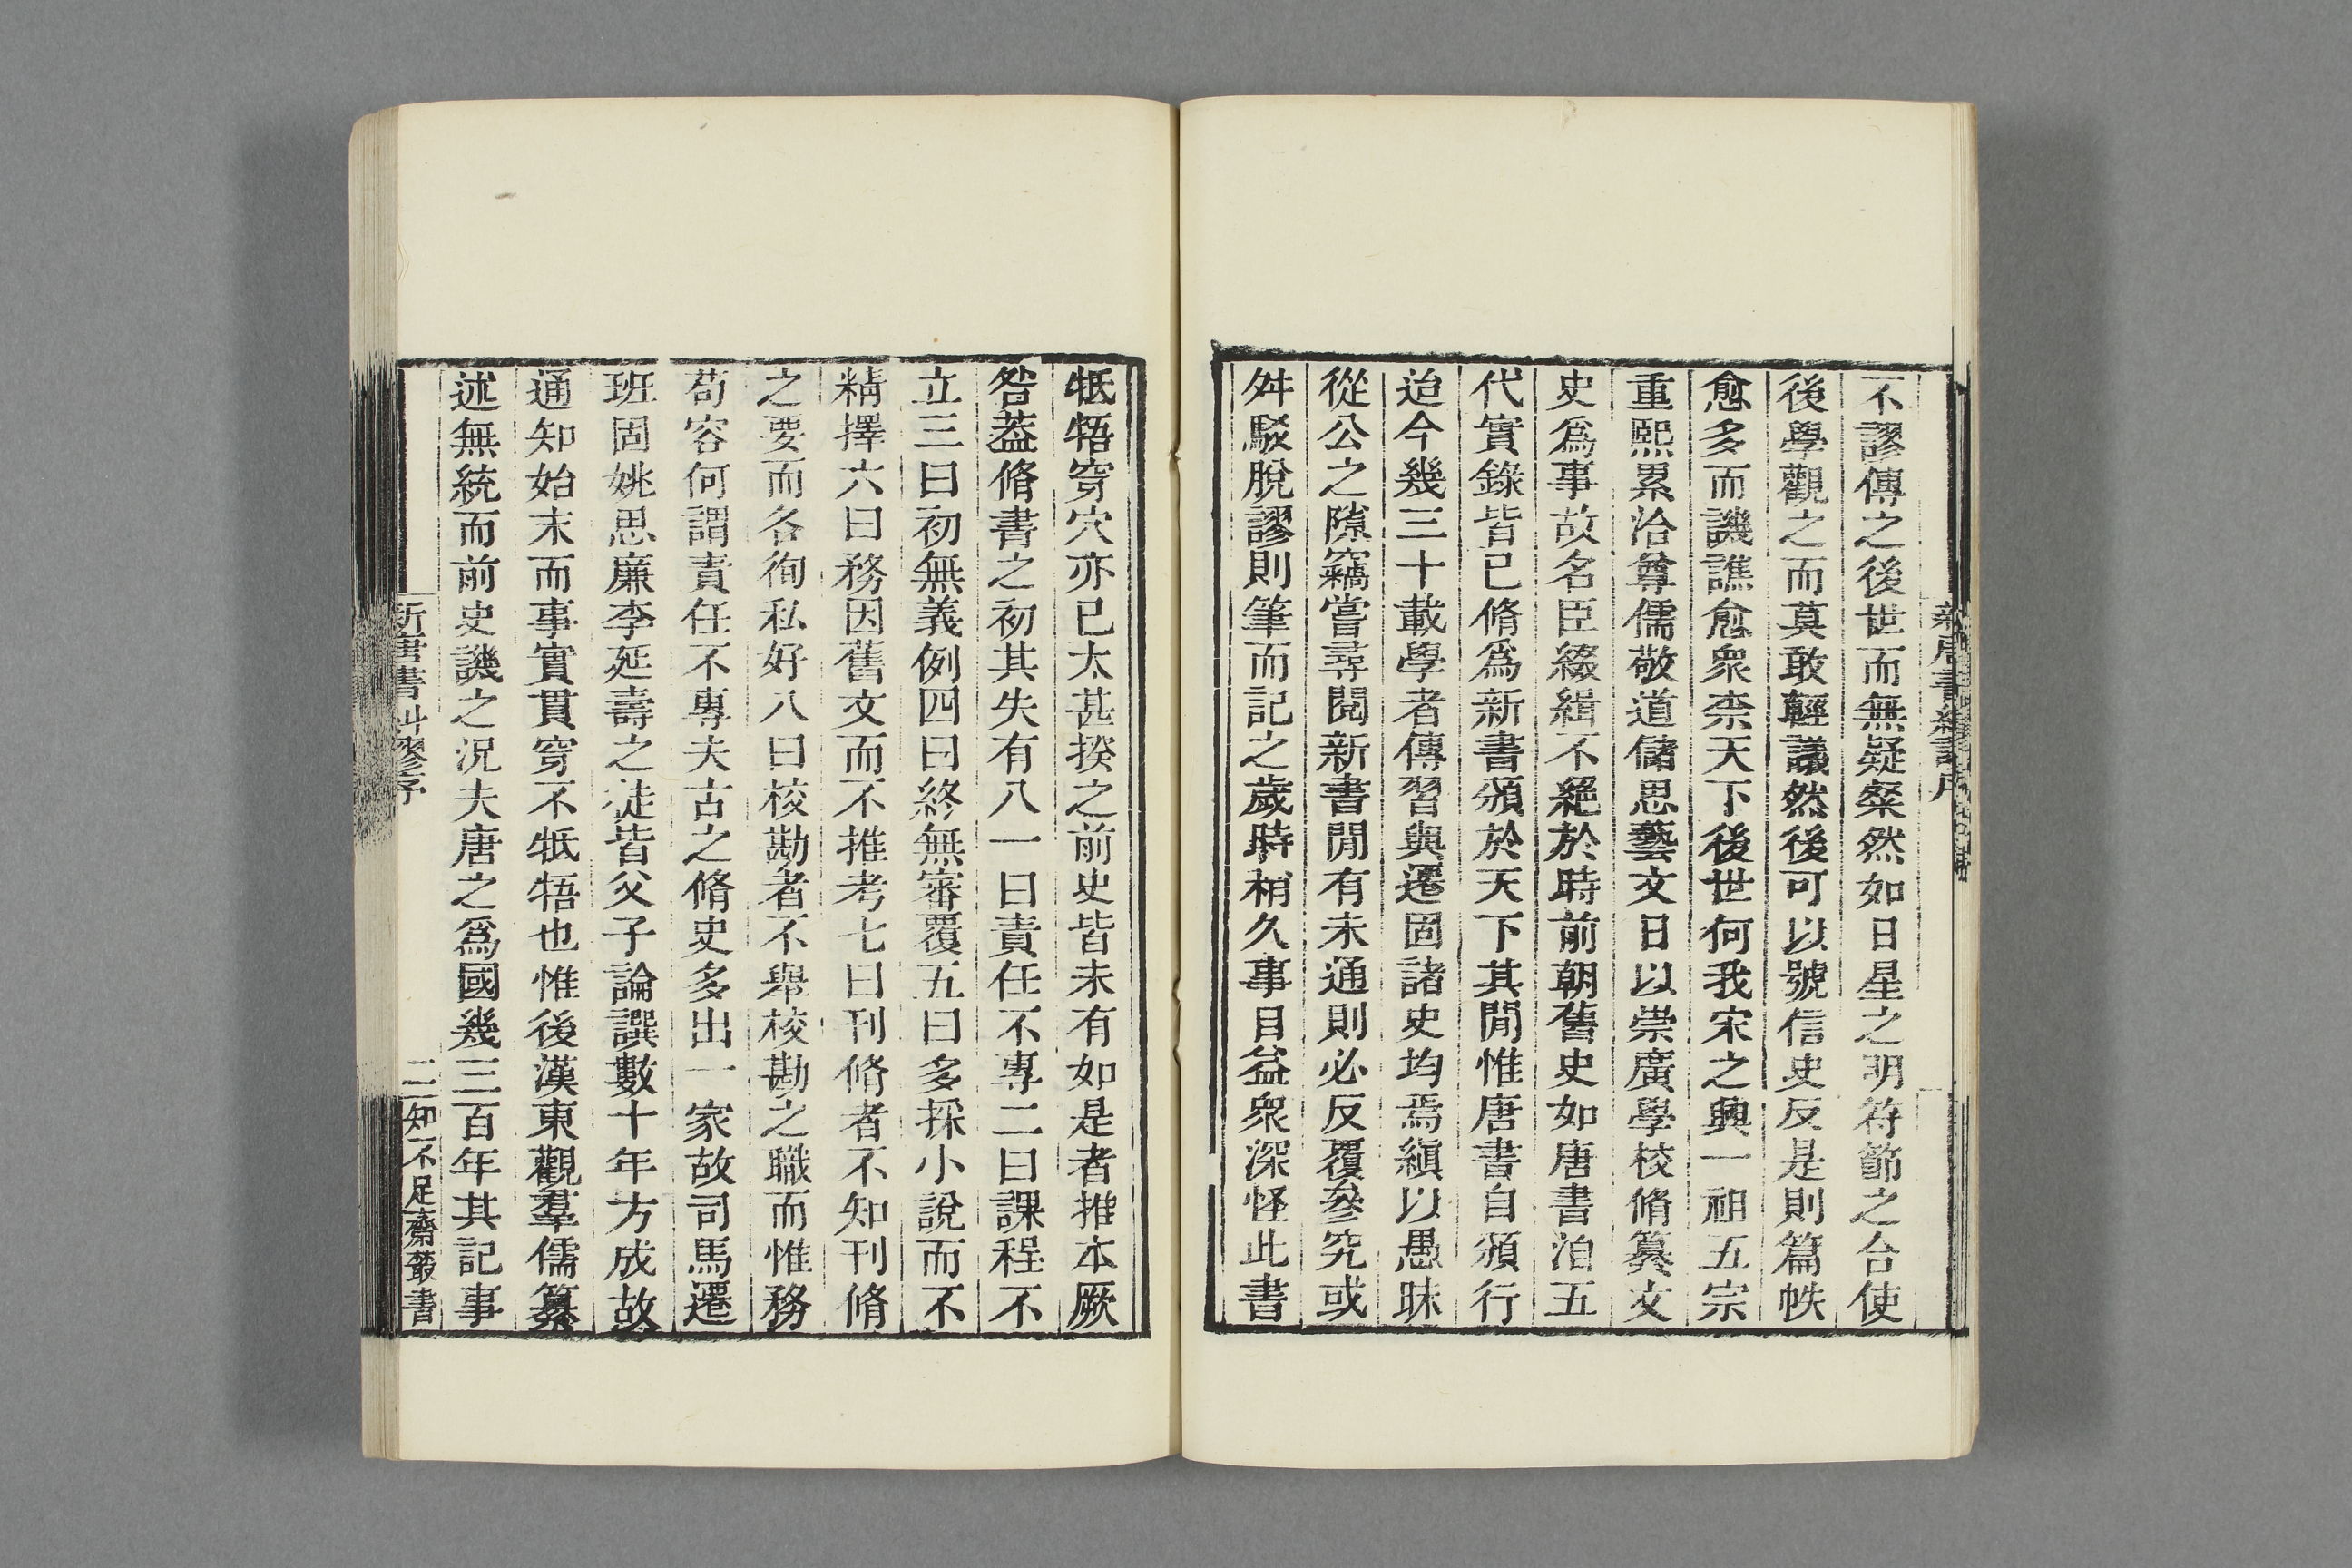 不謬傳之後世而無疑粲然如日星之明符節之合使
後學觀之而莫敢輕議然後可以號信史反是則篇帙
愈多而譏譙愈衆柰天下後世何我宋之興一祖五宗
重熙累洽尊儒敬道儲思藝文日以崇廣學校脩纂文
史爲事故名臣綴緝不絕於時前朝舊史如唐書洎五
代實錄皆已脩爲新書頒於天下其閒惟唐書自頒行
迨今幾三十載學者傳習與遷固諸史均焉縝以愚昧
從公之隙竊嘗尋閱新書閒有未通則必反覆參究或
舛駁脫謬則筆而記之歲時稍久事目益衆深怪此書
牴牾穿穴亦已太甚揆之前史皆未有如是者推本厥
咎葢脩書之初其失有八一曰責任不專二曰課程不
立三曰初無義例四曰終無審覆五曰多採小說而不
精擇六曰務因舊文而不推考七曰刊脩者不知刊脩
之要而各徇私好八曰校勘者不舉校勘之職而惟務
苟容何謂責任不專夫古之脩史多出一家故司馬遷
班固姚思廉李延壽之徒皆父子論譔數十年方成故
通知始末而事實貫穿不牴牾也惟後漢東觀羣儒纂
述無統而前史譏之況夫唐之爲國幾三百年其記事
新唐書糾謬序
二
知不足齋叢書